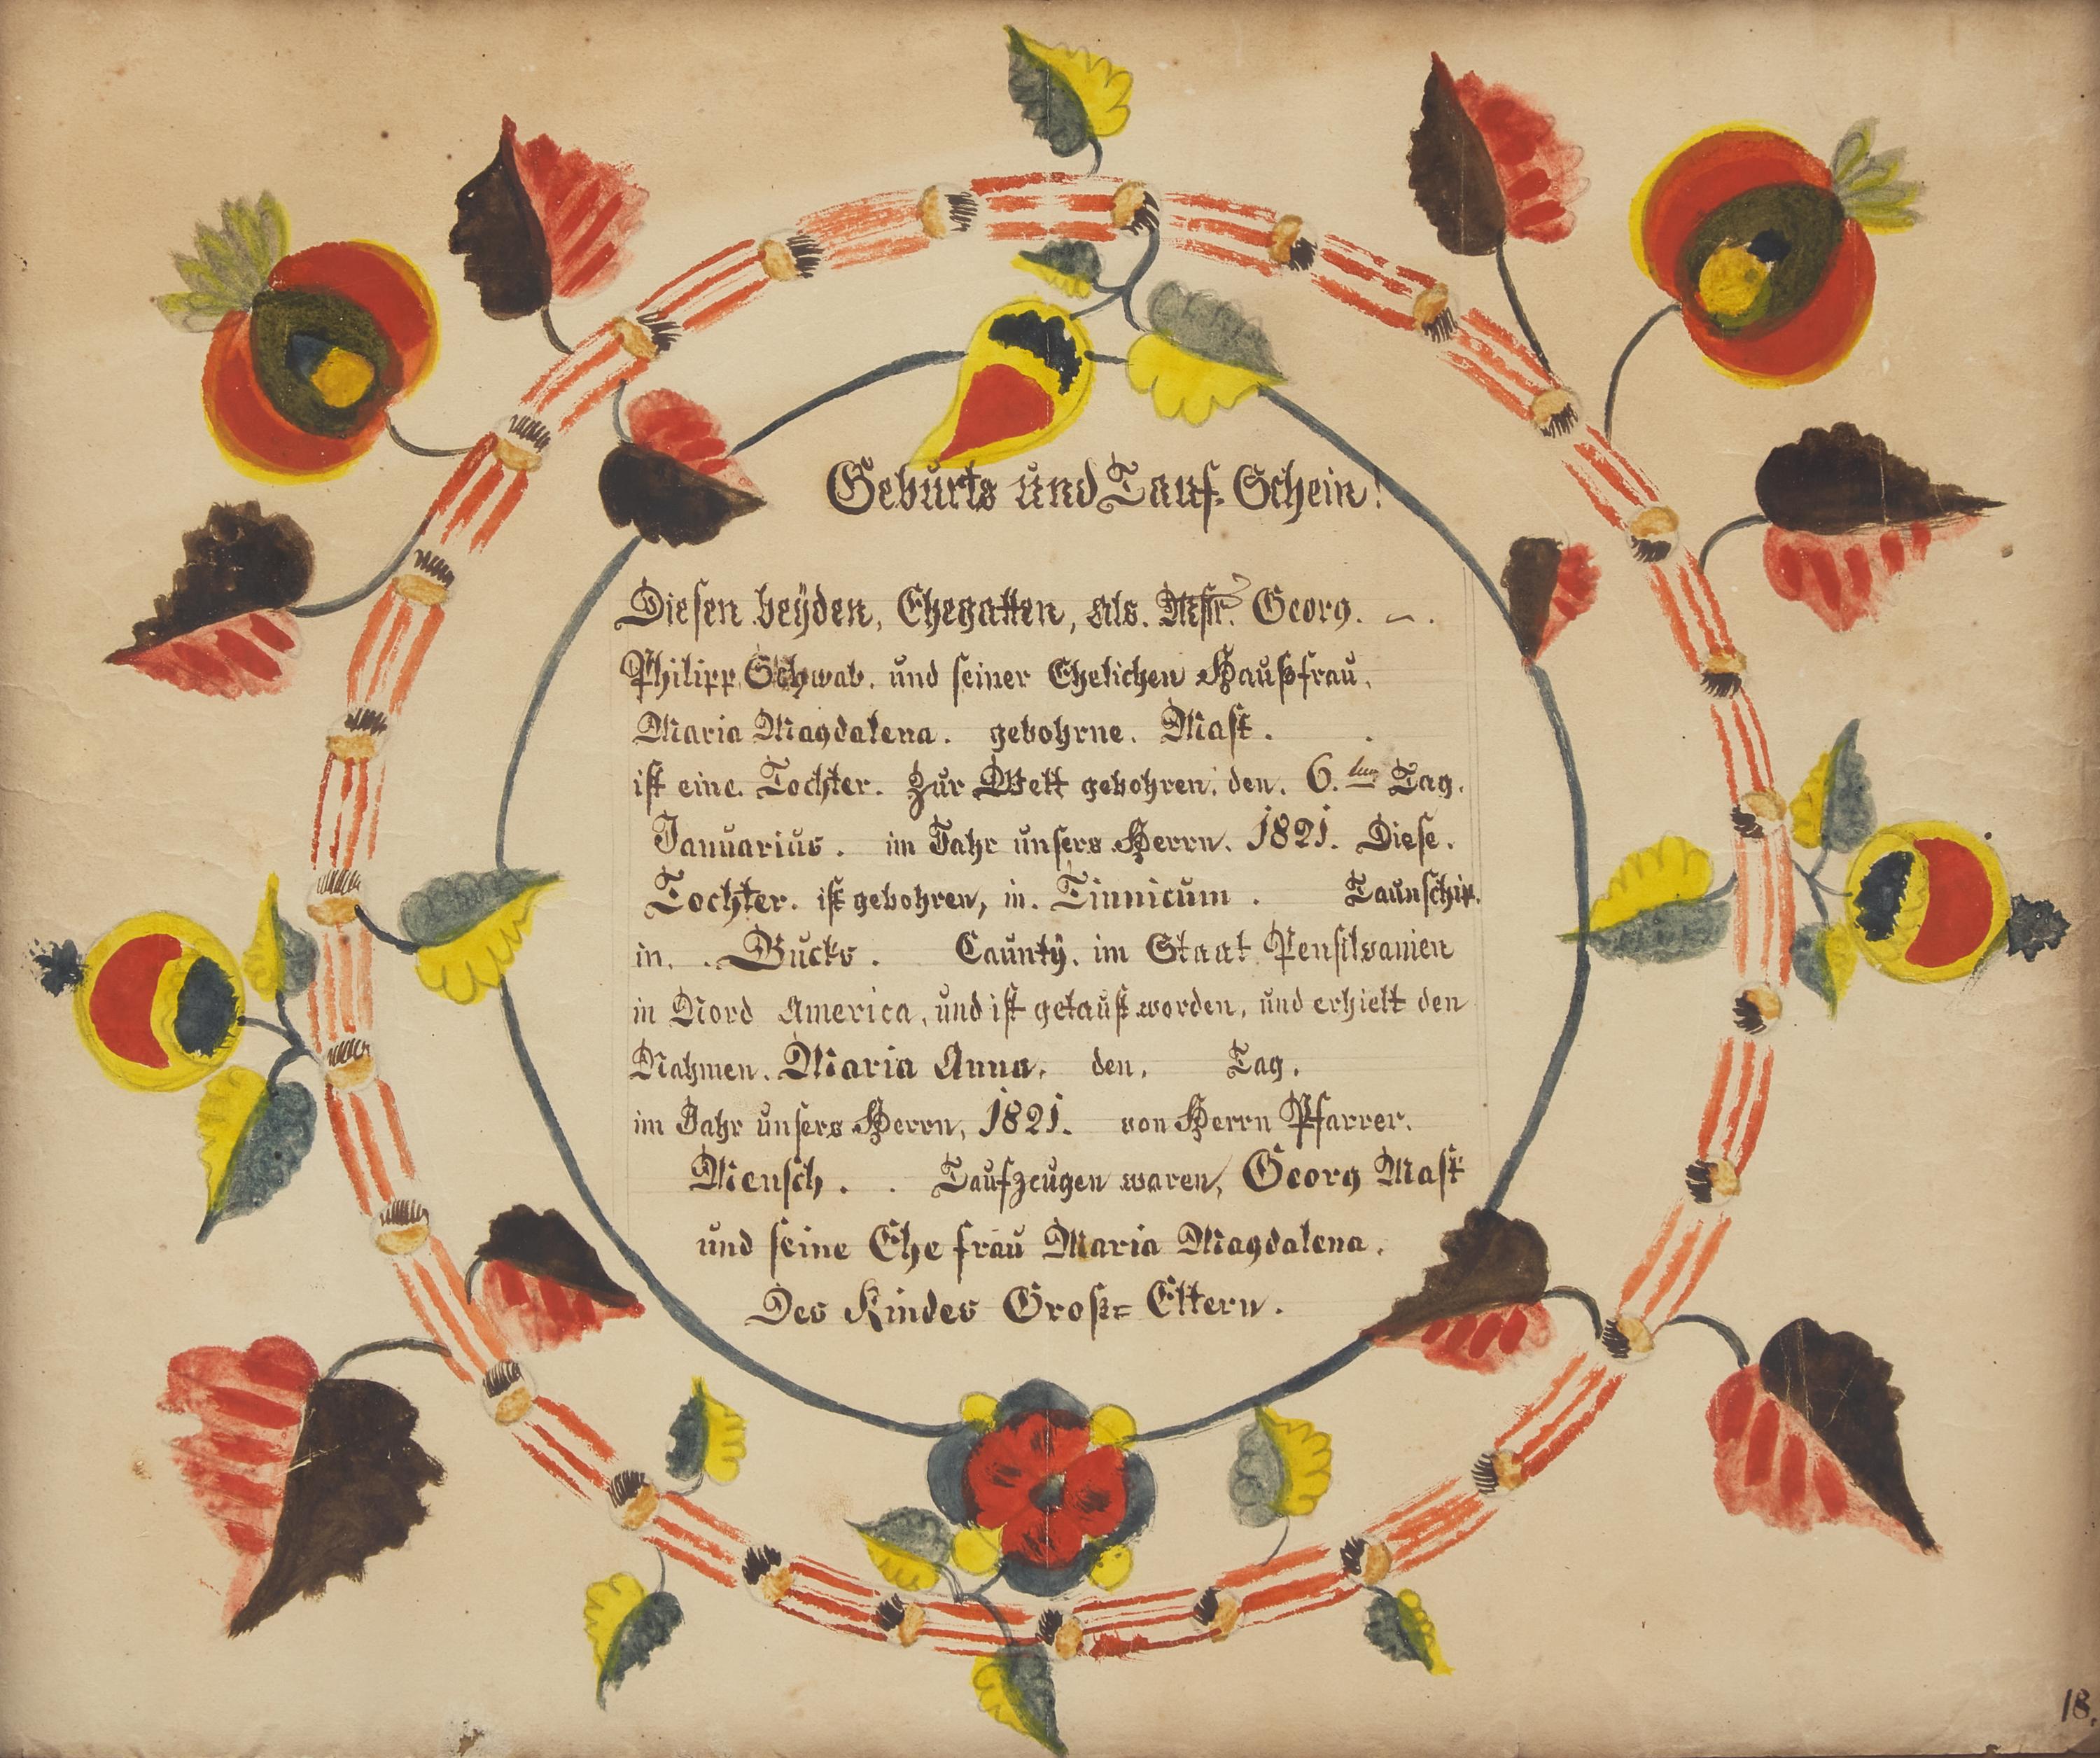 Geburts und Tauf-Schein!
Diesen beÿden, Ehegatten, als. Mstr. Georg.
Philipp Schwab. und seiner Ehelichen Haußfrau,
Maria Magdalena. gebohrne. Mast.
ist eine. Tochter. Zur Welt gebohren, den. 6.ten Tag.
Januarius. im Jahr unsers Herrn. 1821. Diese.
Tochter. ist gebohren, in. Tinnicum. Taunschip.
in. Bucks. Caunty. im Staat Pensilvanien
in Nord America, und ist getauft worden, und erhielt den
Nahmen. Maria Anna. den, Tag.
im Jahr unsers Herrn, 1821. von Herrn Pfarrer.
Mensch. Taufzeugen waren, Georg Mast
und seine Ehe frau Maria Magdalena.
Des Kindes Groß= Eltern.
18.